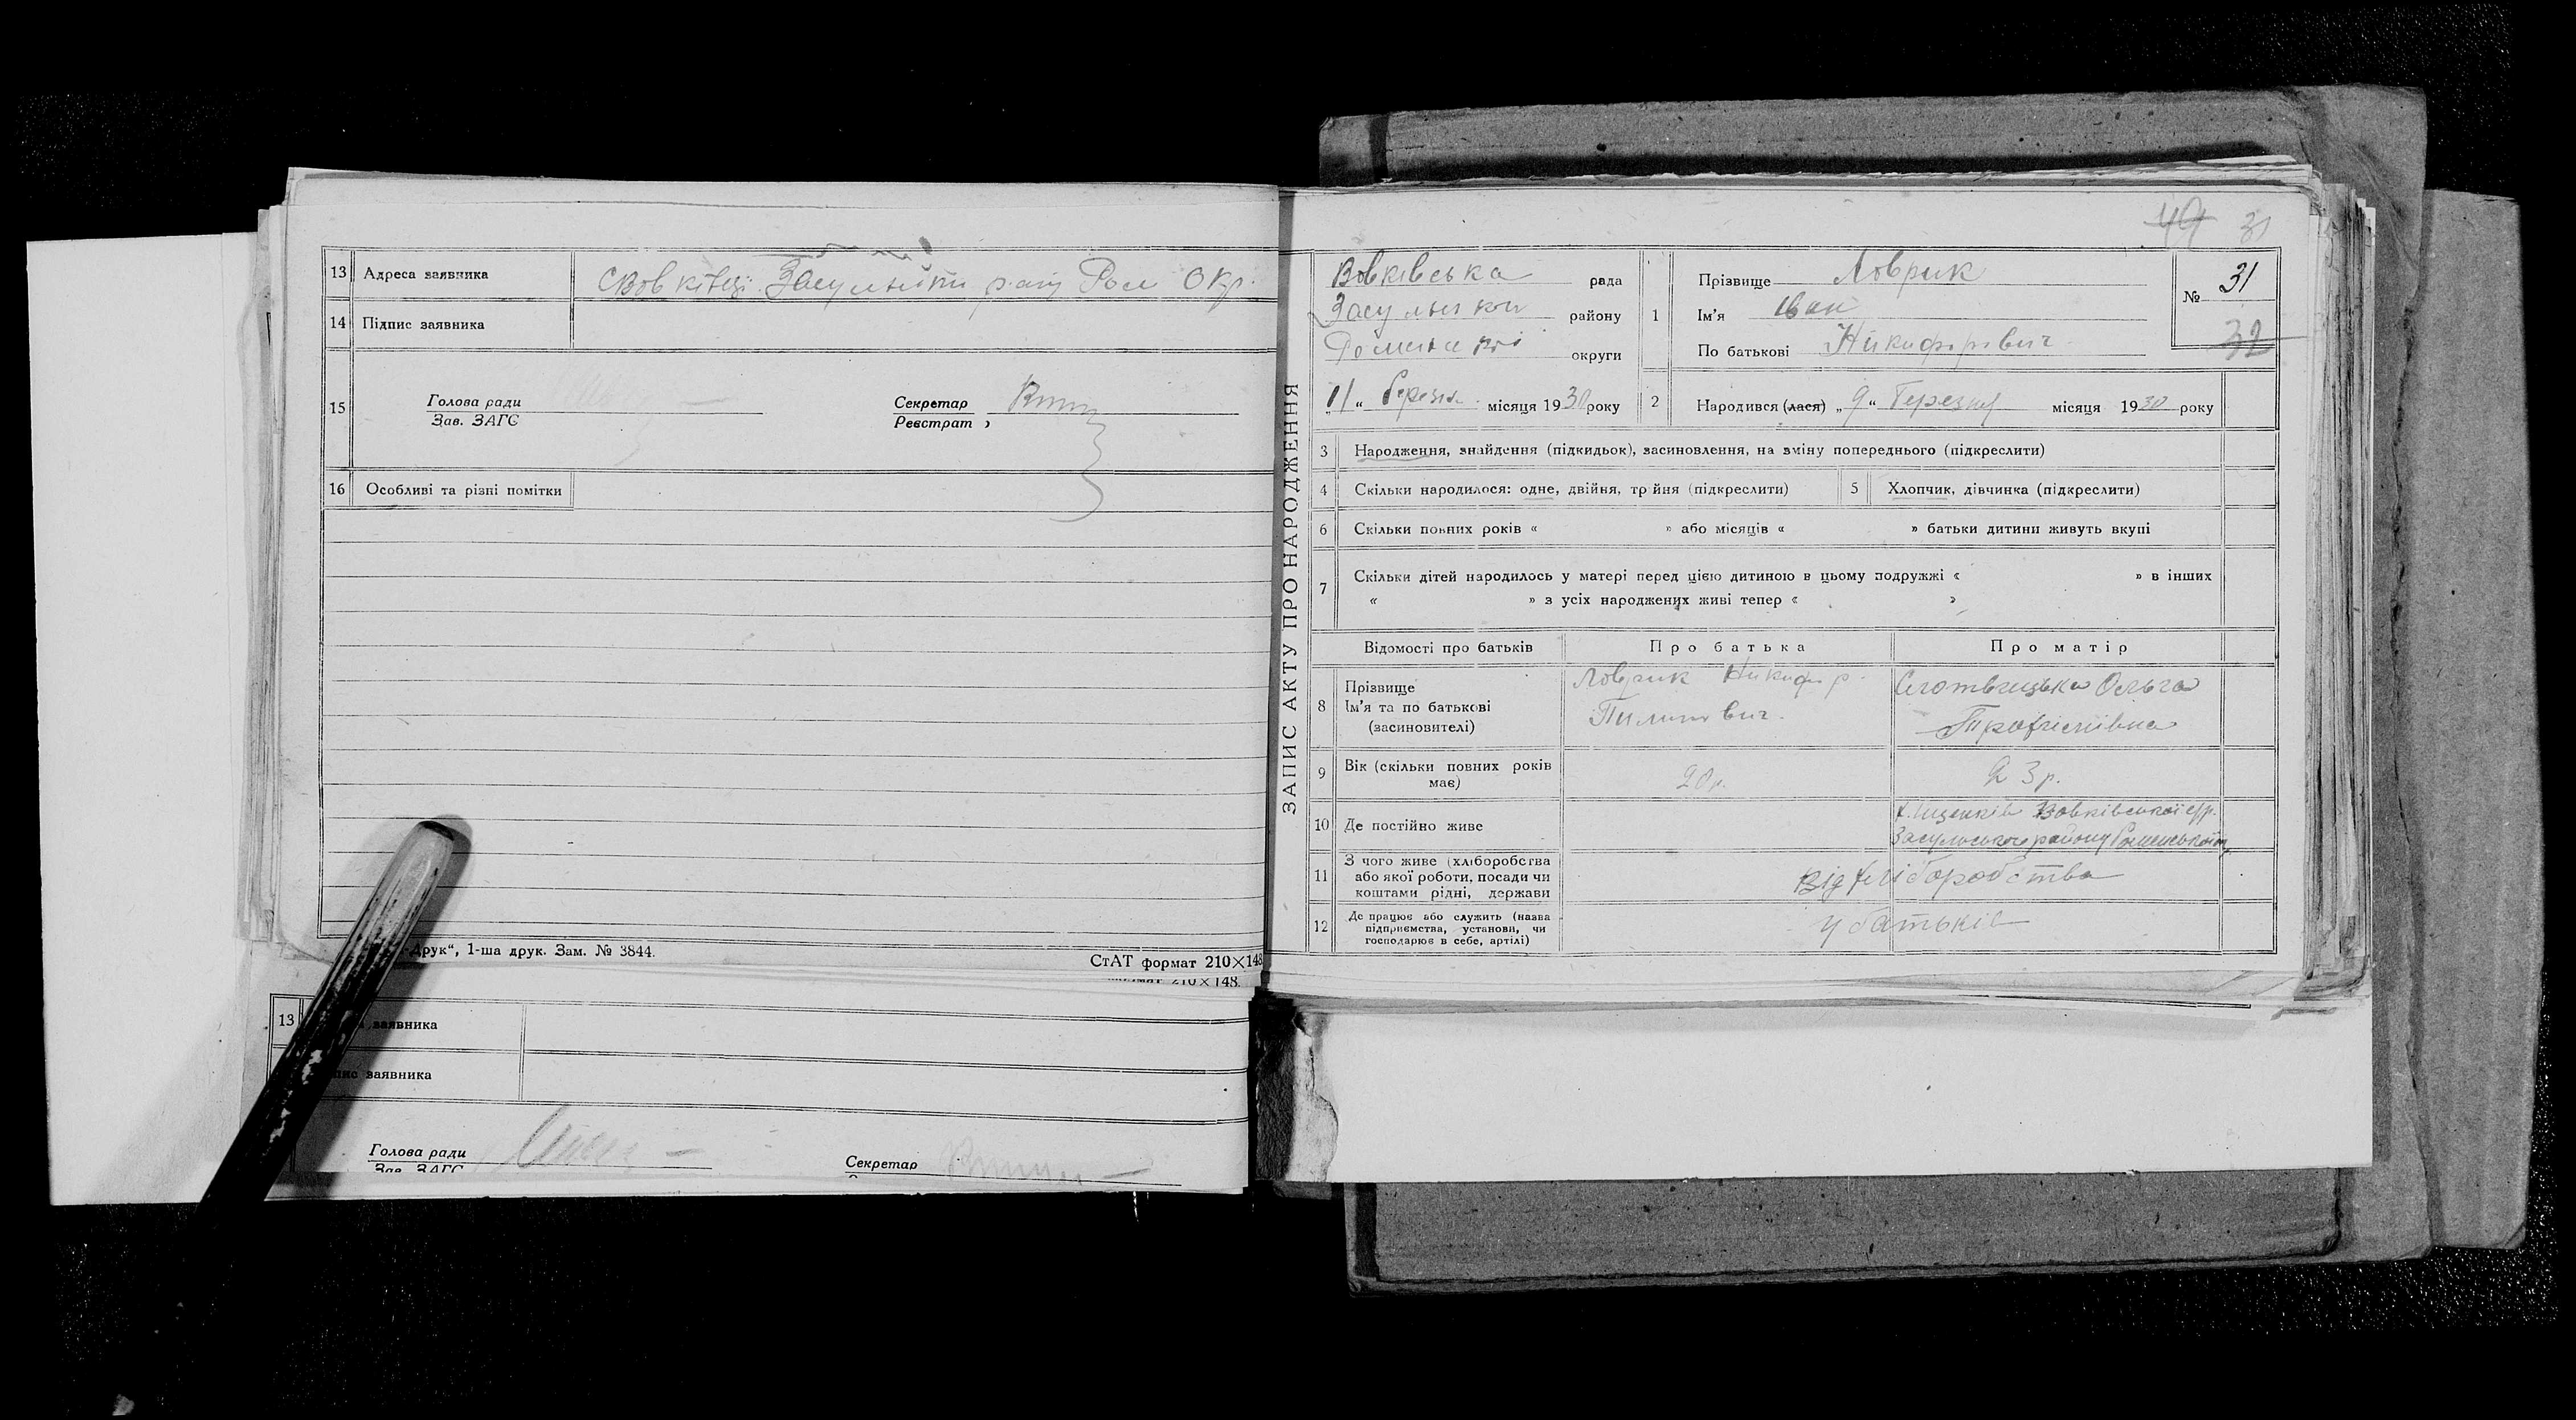 13 Адреса заявника с Вовківці Засульський рай Ром Окр.
14 Підпис заявника
15 Голова ради
Зав. ЗАГС
Секретар
Реєстрат
16 Особливі та різні помітки
Друк“, 1-ша друк. Зам. № 3844.
СтАТ формат 210×148
210×148.
13 заявника
заявника
Голова ради
Зав. ЗАГС
Секретар
49 31
ЗАПИС АКТУ ПРО НАРОДЖЕННЯ
Вовківська рада
району
округи
„11“ березня місяця 1930 року
1 Прізвище Ловрик
Ім'я Іван
По батькові Никифорович
№ 31
32
2 Народився (лася) „9“ березня місяця 1930 року
3 Народження, знайдення (підкидьок), засиновлення, на зміну попереднього (підкреслити)
4 Скільки народилося: одне, двійня, трійня (підкреслити) 5 Хлопчик, дівчинка (підкреслити)
6 Скільки повних років « » або місяців « » батьки дитини живуть вкупі
7 Скільки дітей народилось у матері перед цією дитиною в цьому подружжі « » в інших
« » з усіх народжених живі тепер « »
Відомості про батьків Про батька Про матір
8 Прізвище
Ім'я та по батькові
(засиновителі)
Ловрик Никифор
Пилипович.
Ольга
Трохимівна
9 Вік (скільки повних років
має)
20 р. 23 р.
10 Де постійно живе
Вовківської с/р.
Засульського району Роменської
11 З чого живе (хліборобства
або якої роботи, посади чи
коштами рідні, держави
Від хліборобства
12 Де працює або служить (назва
підприємства, установи, чи
господарює в себе, артілі)
У батьків